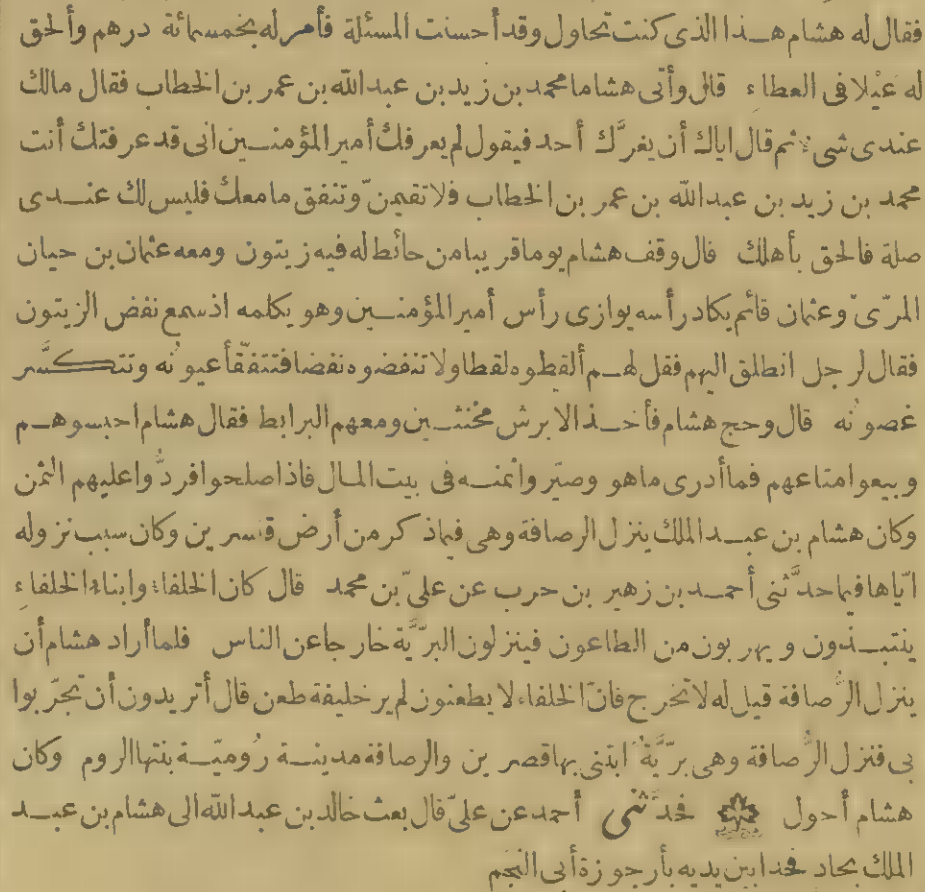 فقال له هشام هذا الذى كنت تحاول وقد أحسنت المسئلة فأمر له بخمسمائة درهم وألحق
له عيْلا فى العطاء قال وأتى هشاما محمد بن زيد بن عبد الله بن عمر بن الخطاب فقال مالك
عندى شىء ثم قال اياك أن يغرَّك أحد فيقول لم يعرفك أمير المؤمنين انى قد عرفتك أنت
محمد بن زيد بن عبد الله بن عمر بن الخطاب فلا تقيمنّ وتنفق ما معك فليس لك عندى
صلة فالحق بأهلك قال وقف هشام يوما قريبا من حائط له فيه زيتون ومعه عثمان بن حيان
المرّىّ وعثمان قائم يكاد رأسه يوازى رأس أمير المؤمنين وهو يكلمه اذ سمع نفض الزيتون
فقال لرجل انطلق اليهم فقل لهم ألقطوه لقطا ولا تنفضوه نفضا فتتفقّأ عيونُه وتتكسَّر
غصونُه قال وحج هشام فأخذ الابرش مخنثين ومعهم البرابط فقال هشام احبسوهم
وبيعوا متاعهم فما أدرى ما هو وصيّروا ثمنه فى بيت المال فاذا صلحوا فردُّوا عليهم الثمن
وكان هشام بن عبد الملك ينزل الرصافة وهى فيما ذكر من أرض قنسرين وكان سبب نزوله
ايّاها فيما حدَّثنى أحمد بن زهير بن حرب عن علىّ بن محمد قال كان الخلفاء وابناء الخلفاء
ينتبذون ويهربون من الطاعون فينزلون البرّيَّة خارجا عن الناس فلما أراد هشام أن
ينزل الرُّصافة قيل له لا تخرج فانّ الخلفاء لا يطعنون لم ير خليفة طعن قال أتريدون أن تجرّبوا
بى فنزل الرُّصافة وهى برّيَّة ابتنى بها قصرين والرصافة مدينة رُوميّة بنتها الروم وكان
هشام أحول فحدَّثنى أحمد عن علىّ قال بعث خالد بن عبد الله الى هشام بن عبد
الملك بحاد فحدا بين يديه بأرجوزة أبى النجم